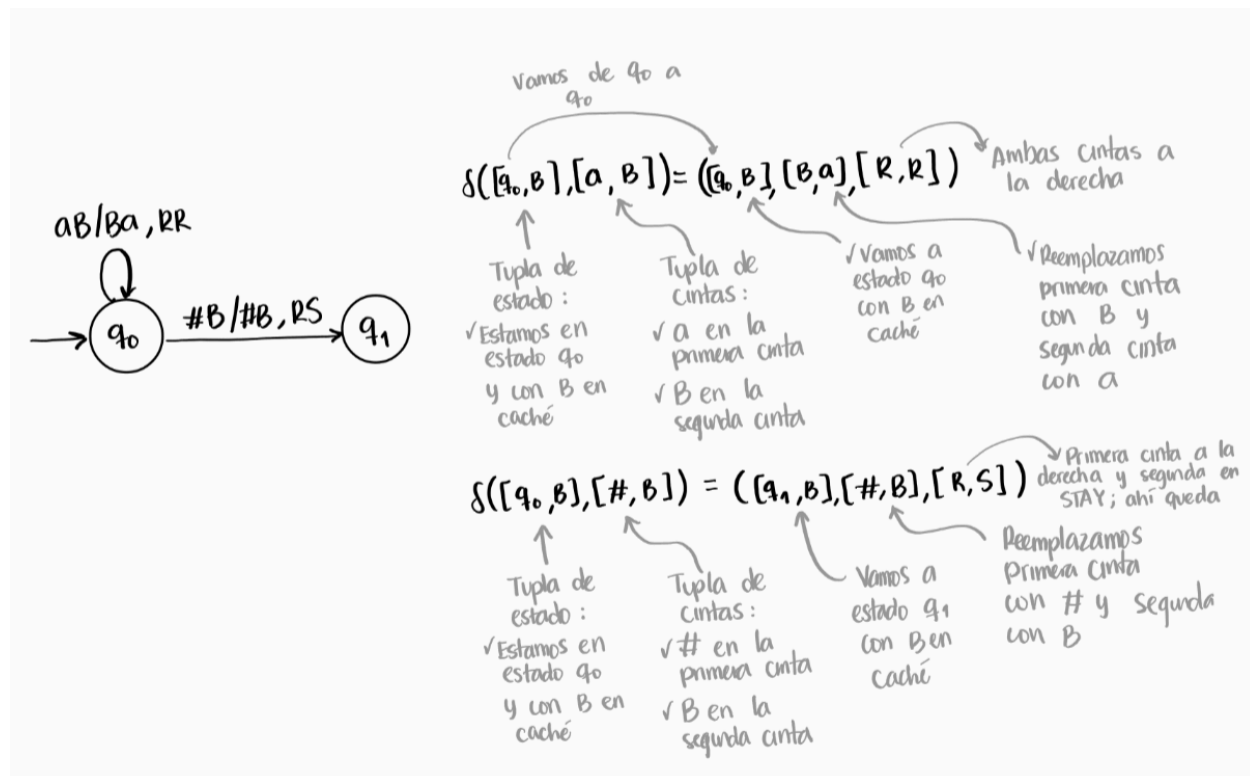 Vamos de q0 a
q0
δ([q0,B],[a, B])=([q0,B],[B,a],[R,R])
Ambas cintas a
la derecha
aB/Ba,RR
q0
#B/#B,RS
q1
Tupla de
estado:
✓Estamos en
estado q0
y con B en
caché
Tupla de
cintas:
✓ a en la
primera cinta
✓ B en la
segunda cinta
✓Vamos a
estado q0
con B en
caché
✓Reemplazamos
primera cinta
con B y
segunda cinta
con a
δ([q0,B],[#,B]) = ([q1,B],[#,B],[R,S])
Primera cinta a la
derecha y segunda en
STAY; ahí queda
Tupla de
estado:
✓Estamos en
estado q0
y con B en
caché
Tupla de
cintas:
✓# en la
primera cinta
✓B en la
segunda cinta
Vamos a
estado q1
con B en
caché
Reemplazamos
primera cinta
con # y segunda
con B